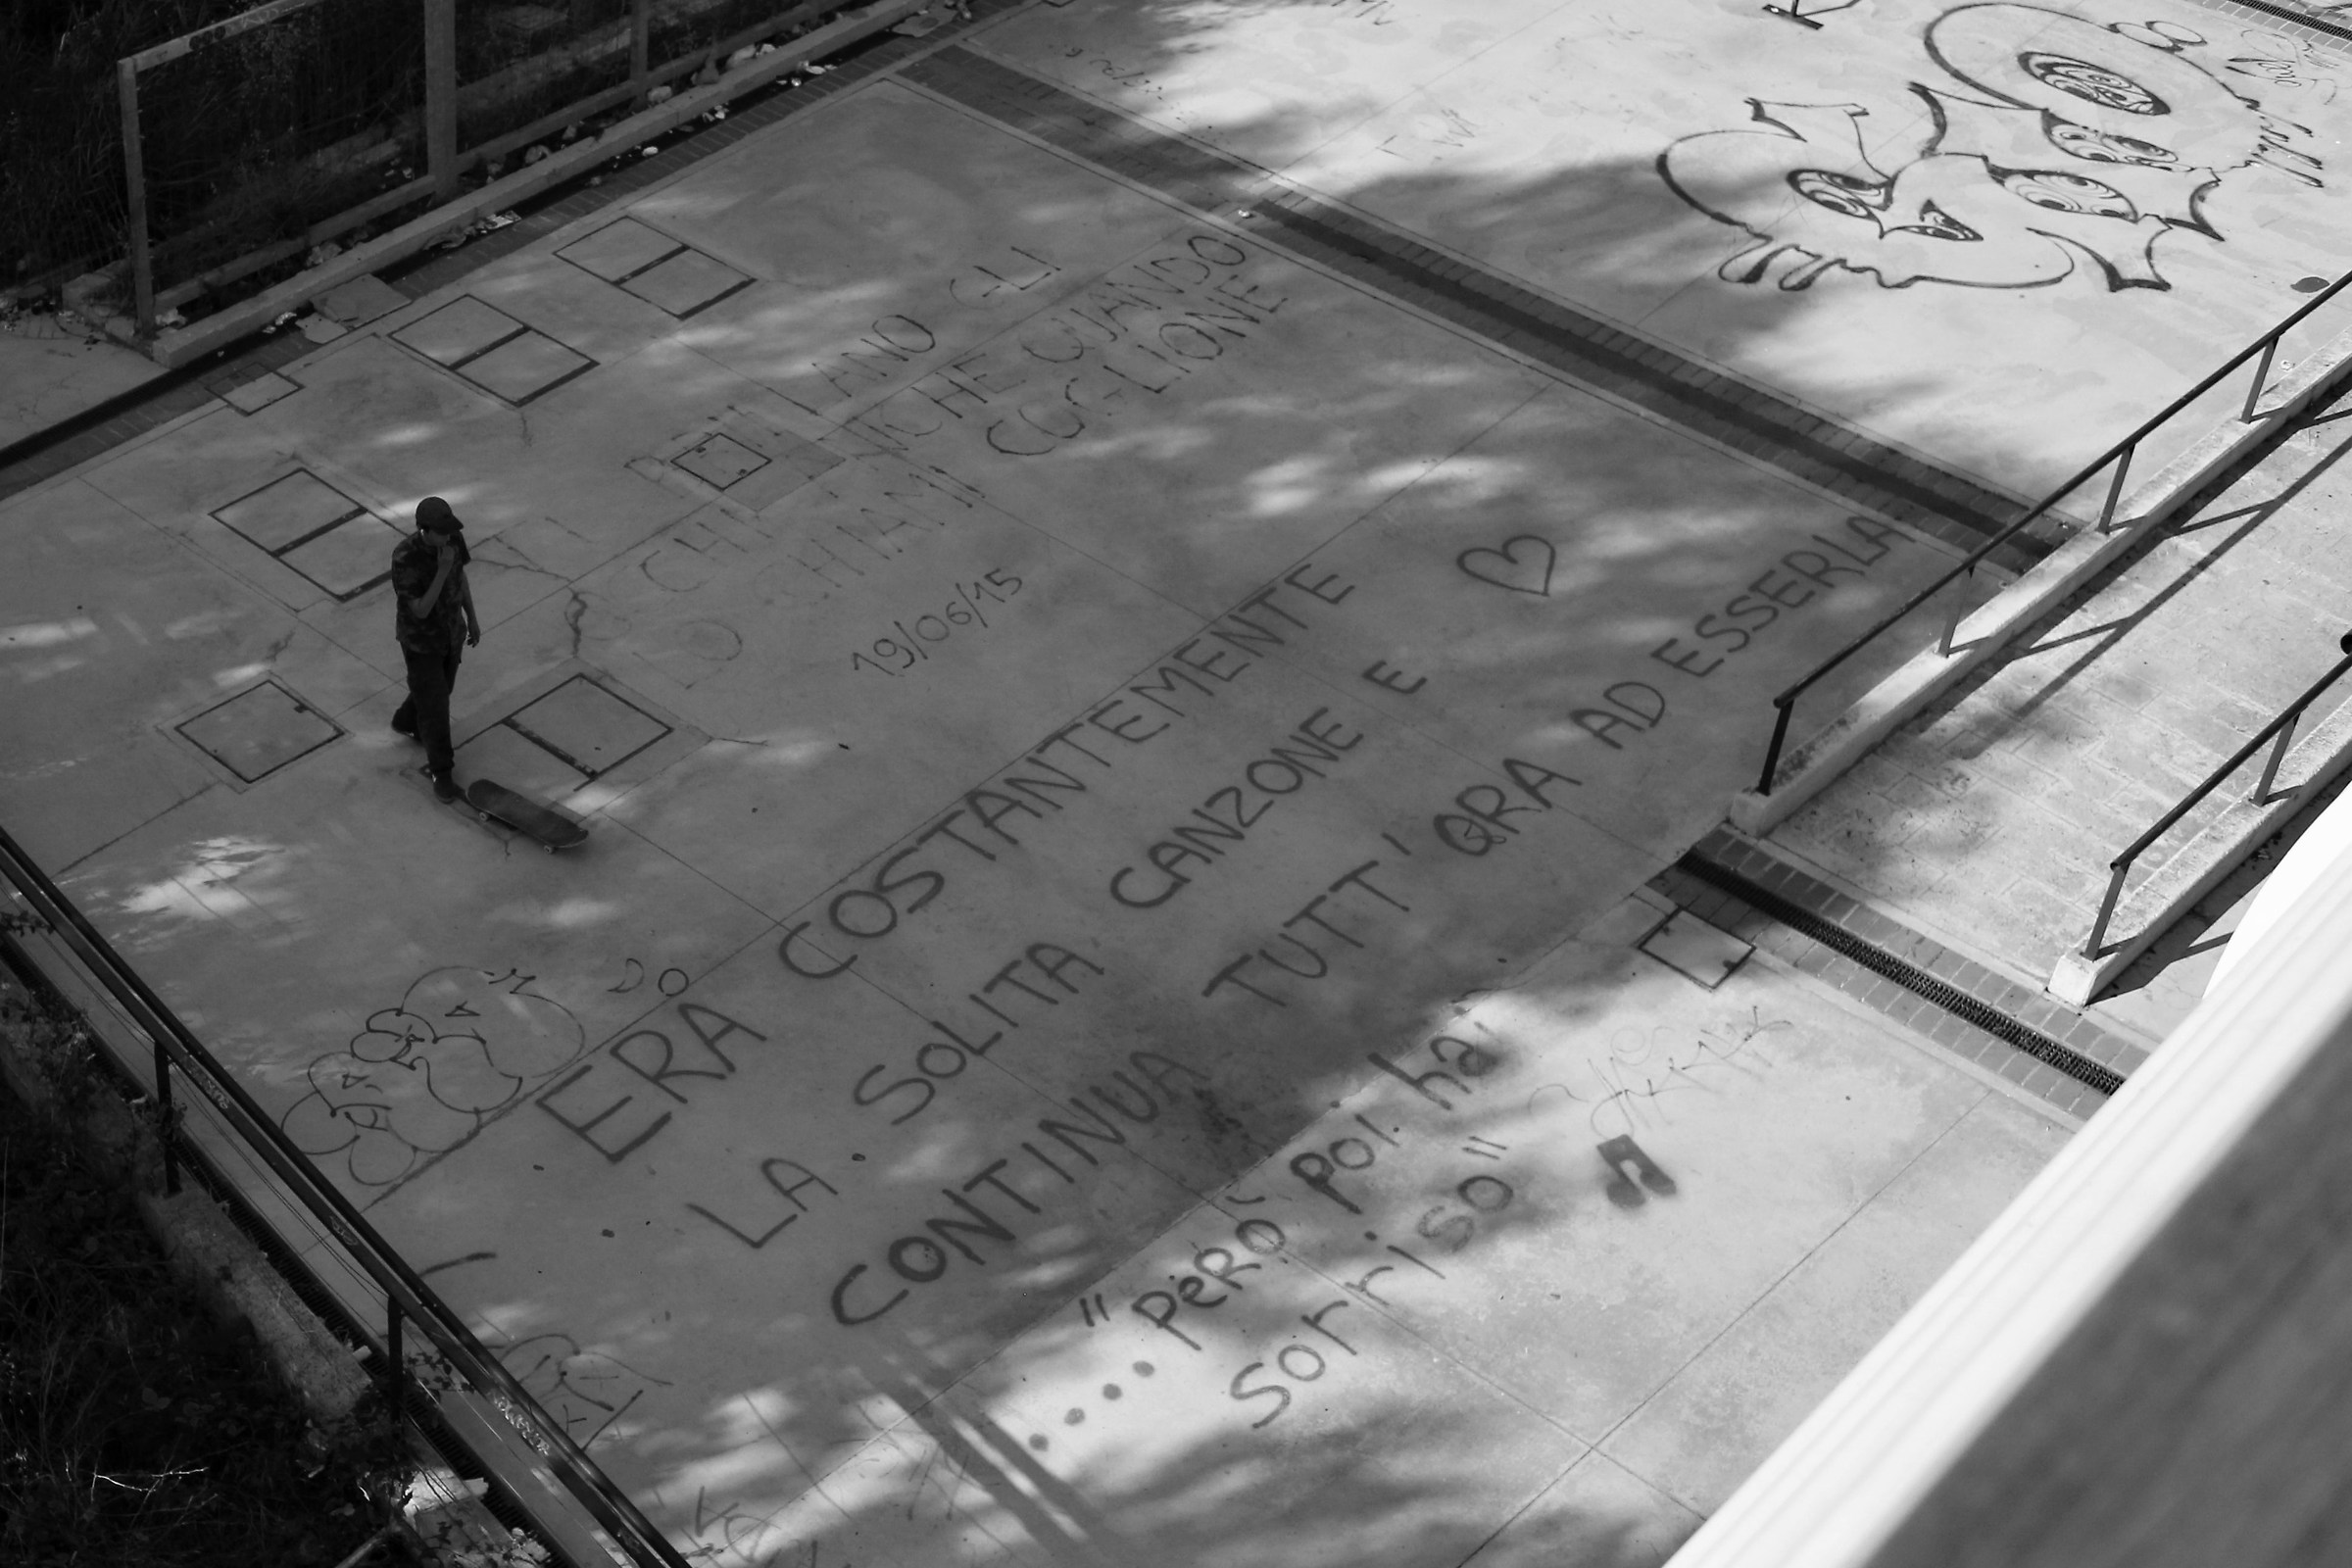 GLI
ANCHE QUANDO
CHIAMI COGLIONE
19/06/15
ERA COSTANTEMENTE
LA SOLITA CANZONE E
CONTINUA TUTT' ORA AD ESSERLA
...."PERÒ poi ha
sorriso"